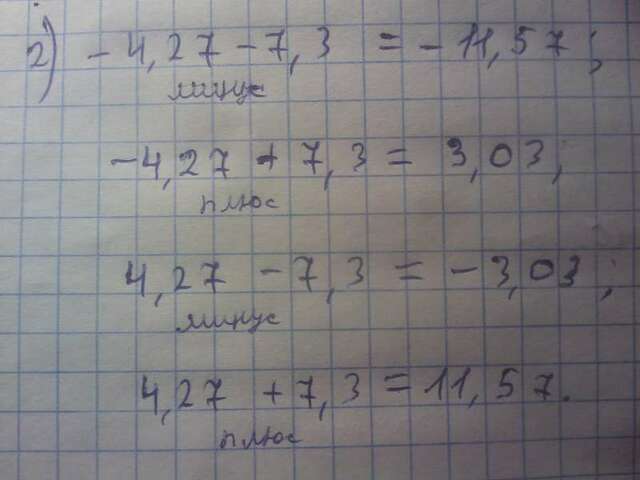 2) - 4,27 - 7,3 = - 11,57;
минус
-4,27 + 7,3 = 3,03;
плюс
4,27 - 7,3 = - 3,03;
минус
4,27 + 7,3 = 11,57.
плюс